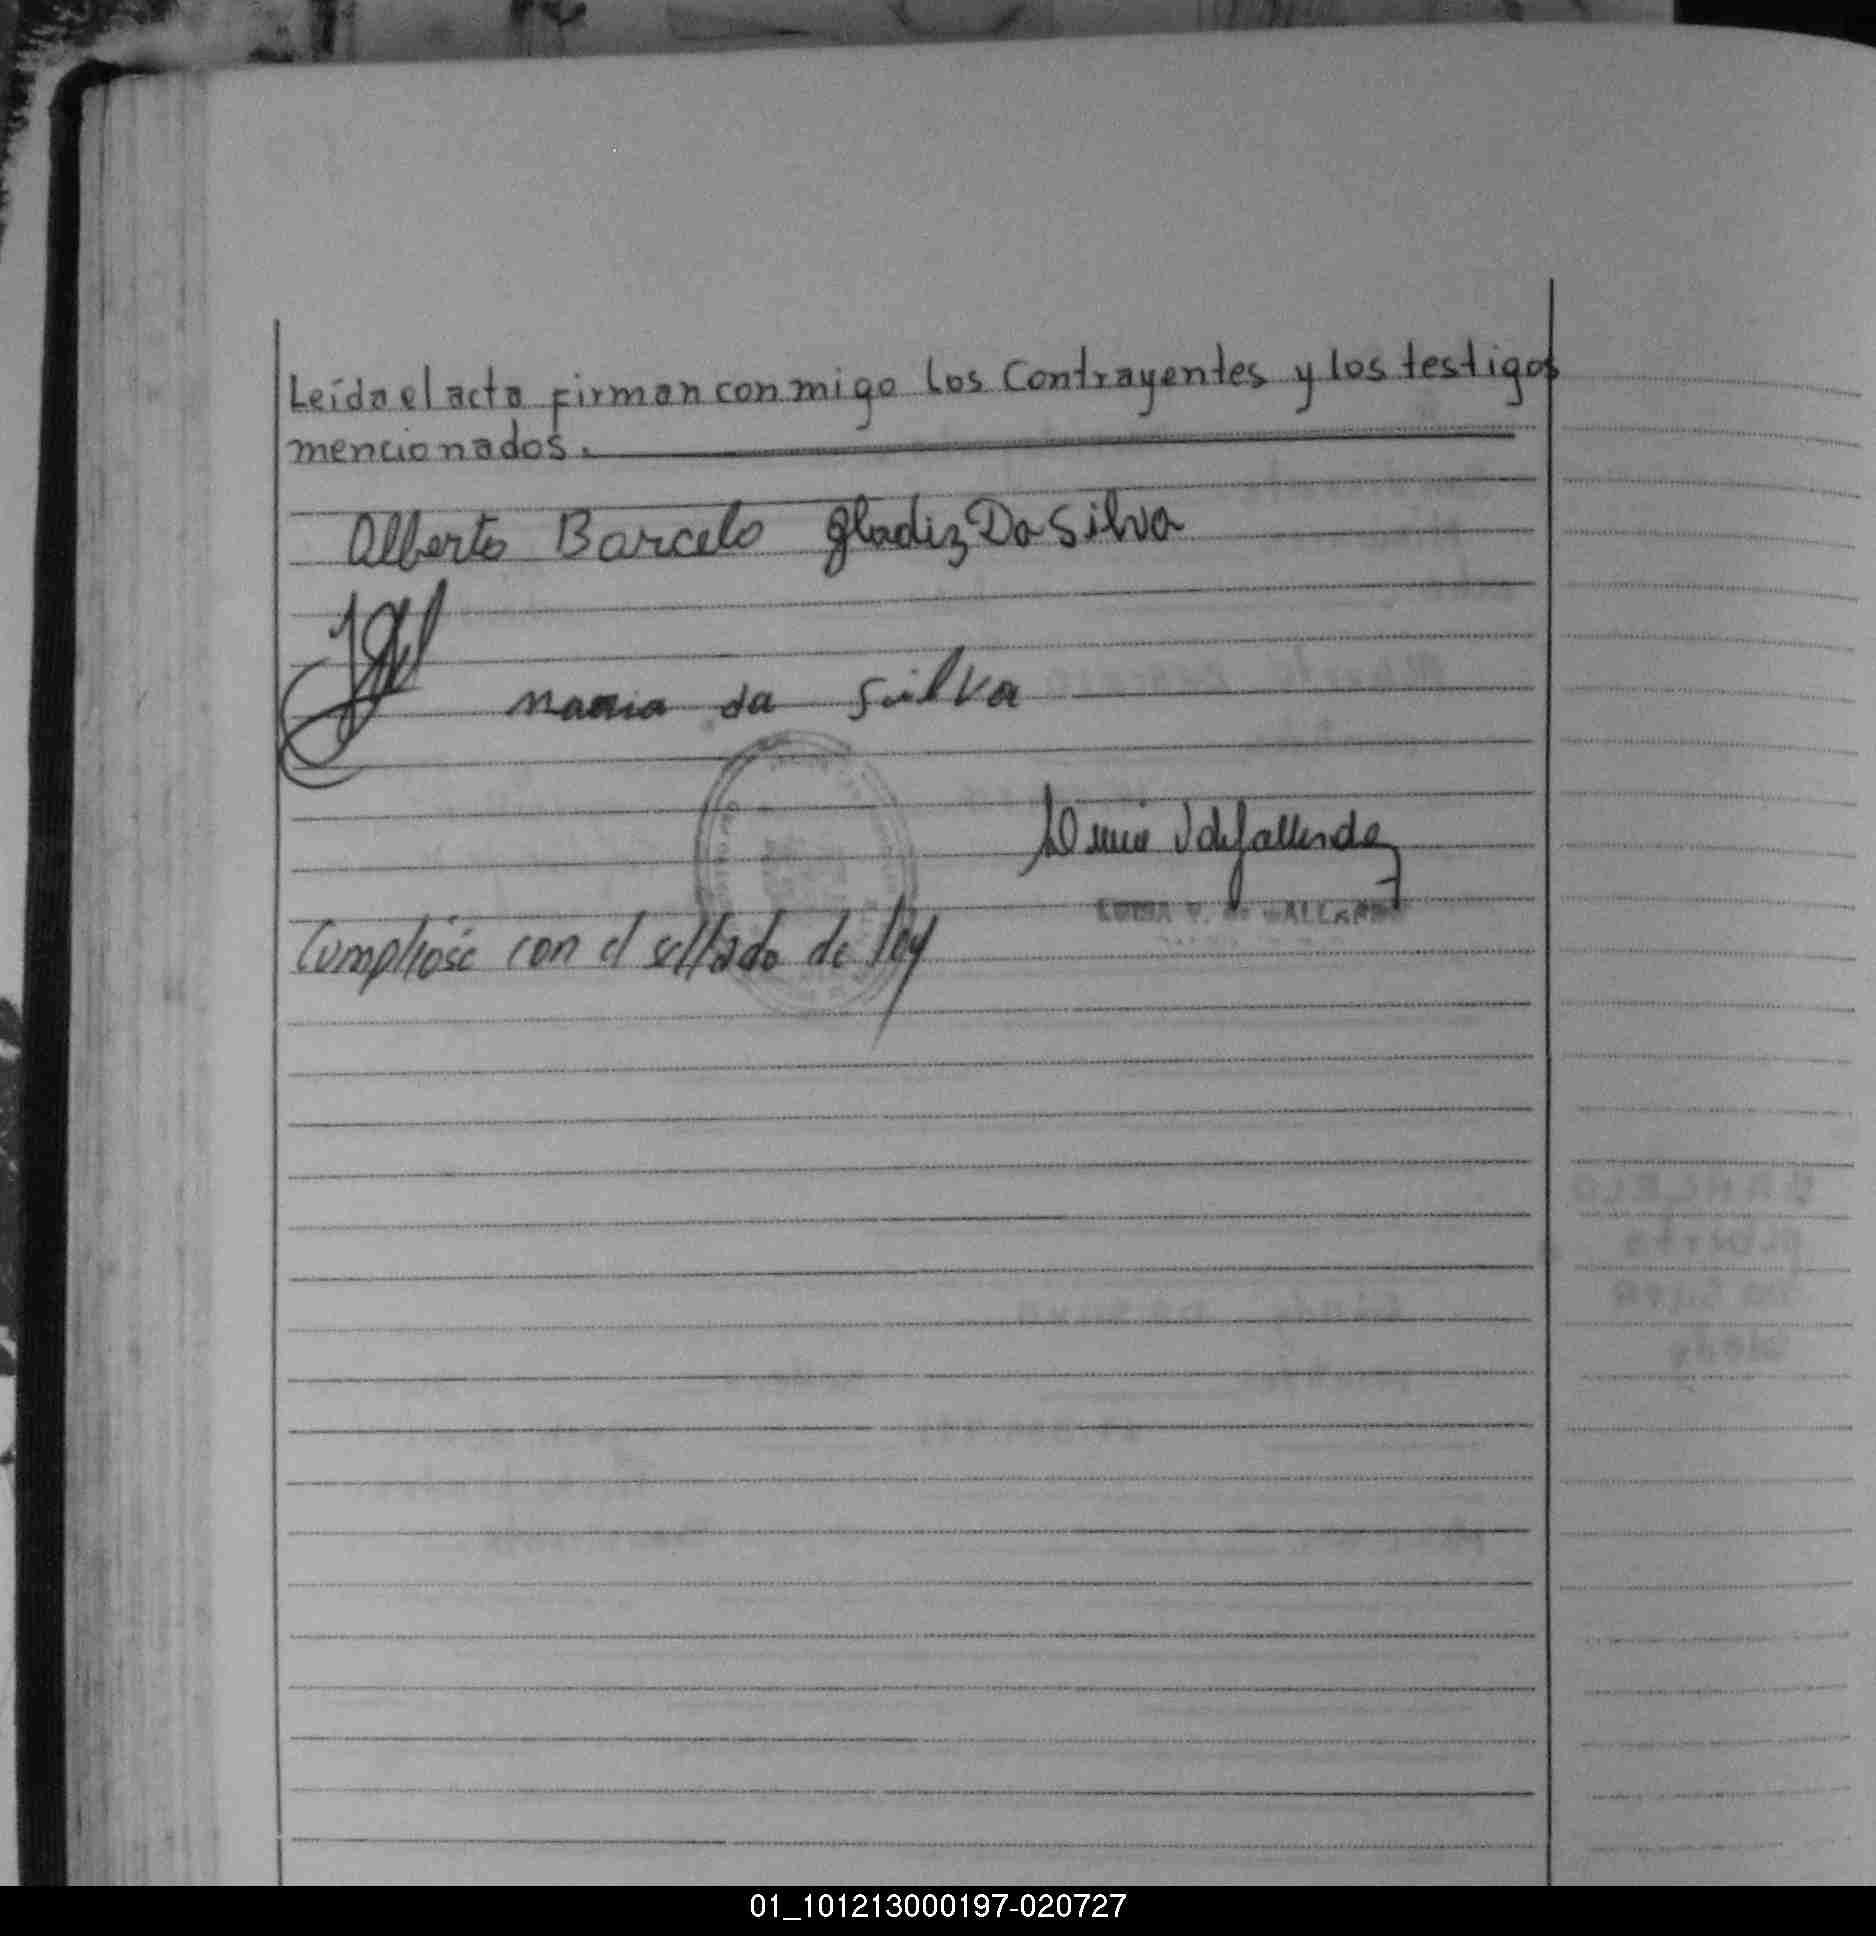 Leída el acta firman conmigo los Contrayentes y los testigos
mencionados.
Alberto Barcelo Gladiz Da Silva
maria da Silva
Cumplióse con el sellado de ley
01_101213000197-020727